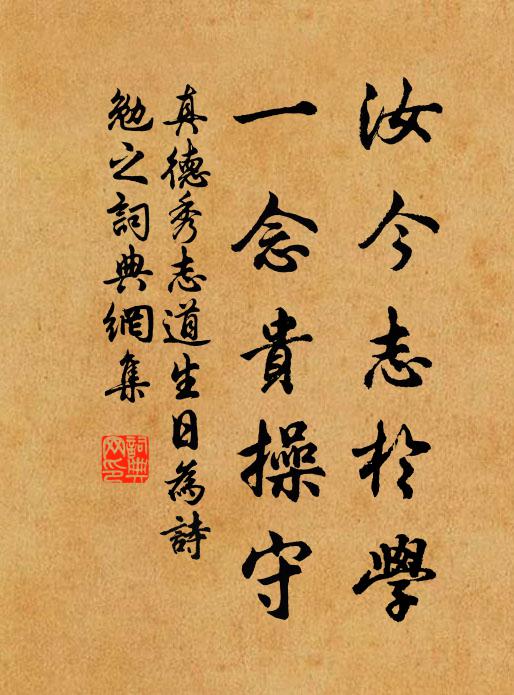 汝今志於學
一念貴操守
真德秀志道生日為詩
勉之詞典網集
詞典
网印